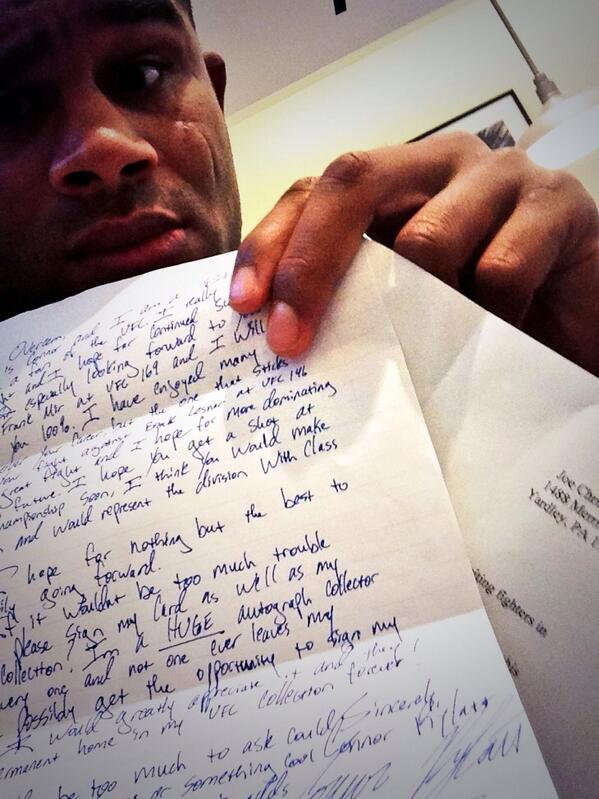 Overeem
is Connor and I am a
a fan of the UFC. I really
and I hope for continued
especially looking forward to
Frank Mir at UFC 169 and I will
you 100%. I have enjoyed many
over your career but the one that sticks
your fight against Brock Lesnar at UFC 146
great fight and I hope for more dominating
future. I hope you get a shot at
championship soon, I think you would make
and would represent the division with class
I hope for nothing but the best to
going forward.
if it wouldnt be too much trouble
please sign my card as well as my
collection. I'm a HUGE autograph collector
every one and not one ever leaves my
possibly get the opportunity to sign my
I would greatly appreciate it and
permanent home in my UFC collection forever!
be too much to ask could
Sincerely,
or something cool Connor
Joe
1488
Yardley, PA
fighters in